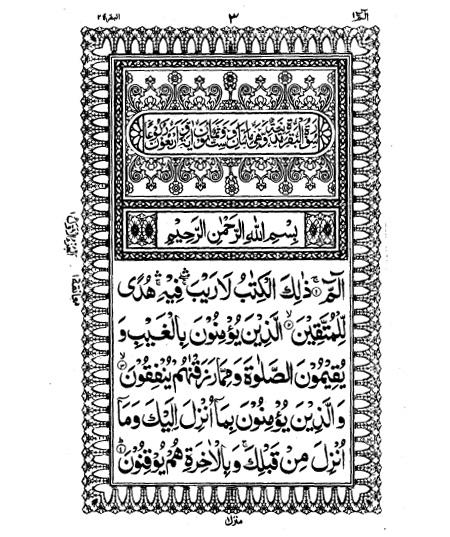 البقرة ٢ ٣ الٓمّٓ ١
سُوْرَةُ الْبَقَرَةِ مَدَنِيَّةٌ وَّهِيَ مِائَتَانِ وَسِتٌّ وَّثَمَانُوْنَ اٰيَةً وَّاَرْبَعُوْنَ رُكُوْعًا
بِسْمِ اللهِ الرَّحْمٰنِ الرَّحِيْمِ
الٓمّٓ ۚ ١ ذٰلِكَ الْكِتٰبُ لَا رَيْبَ ۛ فِيْهِ ۛ هُدًى
لِّلْمُتَّقِيْنَ ۙ ٢ الَّذِيْنَ يُؤْمِنُوْنَ بِالْغَيْبِ وَ
يُقِيْمُوْنَ الصَّلٰوةَ وَمِمَّا رَزَقْنٰهُمْ يُنْفِقُوْنَ ۙ ٣
وَالَّذِيْنَ يُؤْمِنُوْنَ بِمَاۤ اُنْزِلَ اِلَيْكَ وَمَاۤ
اُنْزِلَ مِنْ قَبْلِكَ ۚ وَبِالْاٰخِرَةِ هُمْ يُوْقِنُوْنَ ؕ ٤
منزل